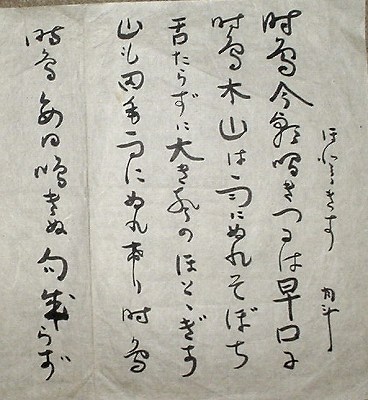 ほとゝきす 月斗
時鳥今朝鳴きつるは早口に
時鳥木山は雨にぬれそぼち
舌たらずに大き声のほとゝぎす
山も田も雨にぬれ居り時鳥
時鳥毎日鳴きぬ句成らず